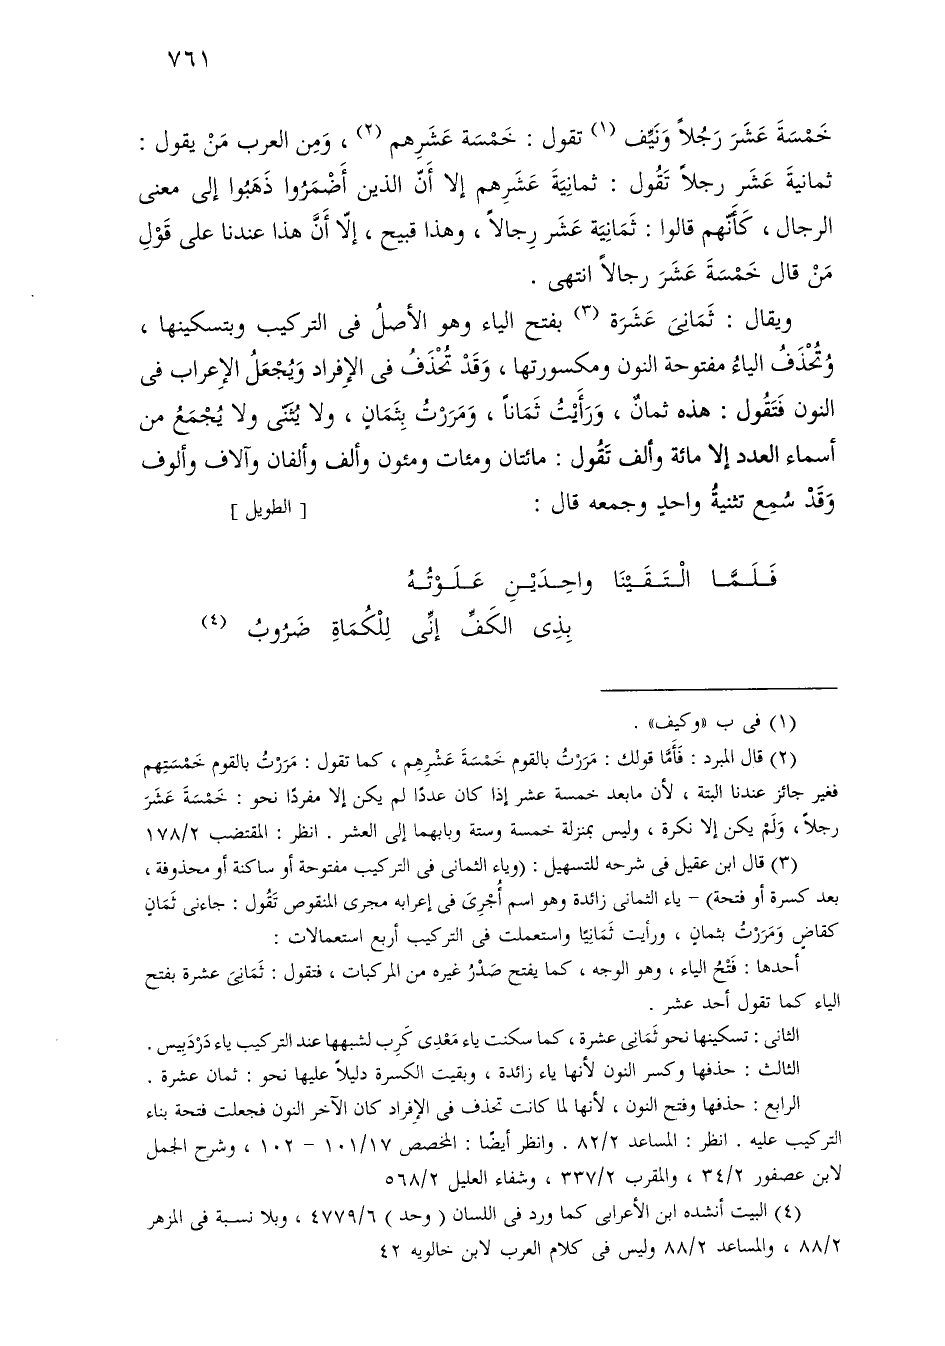 ٧٦١
خَمْسَةَ عَشَرَ رَجُلاً وَنَيِّف (١) تقول : خَمْسَة عَشَرِهم (٢) ، وَمِن العرب مَنْ يقول :
ثمانيةَ عَشَر رجلاً تَقُول : ثمانِيَةَ عَشَرِهم إلا أَنّ الذين أَضْمَرُوا ذَهَبُوا إلى معنى
الرجال ، كَأَنّهم قالوا : ثَمَانِيَة عَشَر رِجالاً ، وهذا قبيح ، إلّا أَنَّ هذا عندنا على قَوْلِ
مَنْ قال خَمْسَةَ عَشَرَ رجالاً انتهى .
ويقال : ثَمَانِىَ عَشَرَة (٣) بفتح الياء وهو الأصلُ فى التركيب وبتسكينها ،
وُتُحْذَفُ الياءُ مفتوحة النون ومكسورتها ، وَقَدْ تُحْذَفُ فى الإفراد وَيُجْعَلُ الإعراب فى
النون فَتَقُول : هذه ثمانٌ ، وَرَأَيْتُ ثَمَاناً ، وَمَرَرْتُ بِثَمَانٍ ، ولا يُثَنّى ولا يُجْمَعُ من
أسماء العدد إلا مائة وألف تَقُول : مائتان ومئات ومئون وألف وألفان وآلاف وألوف
وَقَدْ سُمِع تثنيةُ واحدٍ وجمعه قال : [ الطويل ]
فَلَمَّا الْتَقَيْنَا واحِدَيْنِ عَلَوْتُهُ
بِذِى الكَفِّ إنِّى لِلْكُمَاةِ ضَرُوبُ (٤)
(١) فى ب «وكيف» .
(٢) قال المبرد : فَأَمَّا قولك : مَرَرْتُ بالقوم خَمْسَةَ عَشْرِهِم ، كما تقول : مَرَرْتُ بالقوم خَمْسَتِهم
فغير جائز عندنا البتة ، لأن مابعد خمسة عشر إذا كان عددًا لم يكن إلا مفردًا نحو : خَمْسَةَ عَشَرَ
رجلاً، وَلَمْ يكن إلا نكرة ، وليس بمنزلة خمسة وستة وبابهما إلى العشر . انظر : المقتضب ١٧٨/٢
(٣) قال ابن عقيل فى شرحه للتسهيل : (وياء الثمانى فى التركيب مفتوحة أو ساكنة أو محذوفة ،
بعد كسرة أو فتحة) – ياء الثمانى زائدة وهو اسم أُجْرِىَ فى إعرابه مجرى المنقوص تَقُول : جاءنى ثَمَانٍ
كقاضٍ وَمَرَرْتُ بثمانٍ ، ورأيت ثَمَانِيًا واستعملت فى التركيب أربع استعمالات :
أحدها : فَتْحُ الياء ، وهو الوجه ، كما يفتح صَدْرُ غيره من المركبات ، فتقول : ثَمَانِىَ عشرة بفتح
الياء كما تقول أحد عشر .
الثانى : تسكينها نحو ثَمَانِى عشرة ، كما سكنت ياء مَعْدِى كَرِب لشبهها عند التركيب ياء دَرْدَبِيس .
الثالث : حذفها وكسر النون لأنها ياء زائدة ، وبقيت الكسرة دليلاً عليها نحو : ثمان عشرة .
الرابع : حذفها وفتح النون ، لأنها لما كانت تحذف فى الإفراد كان الآخر النون فجعلت فتحة بناء
التركيب عليه . انظر : المساعد ٨٢/٢ . وانظر أيضًا : المخصص ١٠١/١٧ – ١٠٢ ، وشرح الجمل
لابن عصفور ٣٤/٢ ، والمقرب ٣٣٧/٢ ، وشفاء العليل ٥٦٨/٢
(٤) البيت أنشده ابن الأعرابى كما ورد فى اللسان ( وحد ) ٤٧٧٩/٦ ، وبلا نسبة فى المزهر
٨٨/٢ ، والمساعد ٨٨/٢ وليس فى كلام العرب لابن خالويه ٤٢